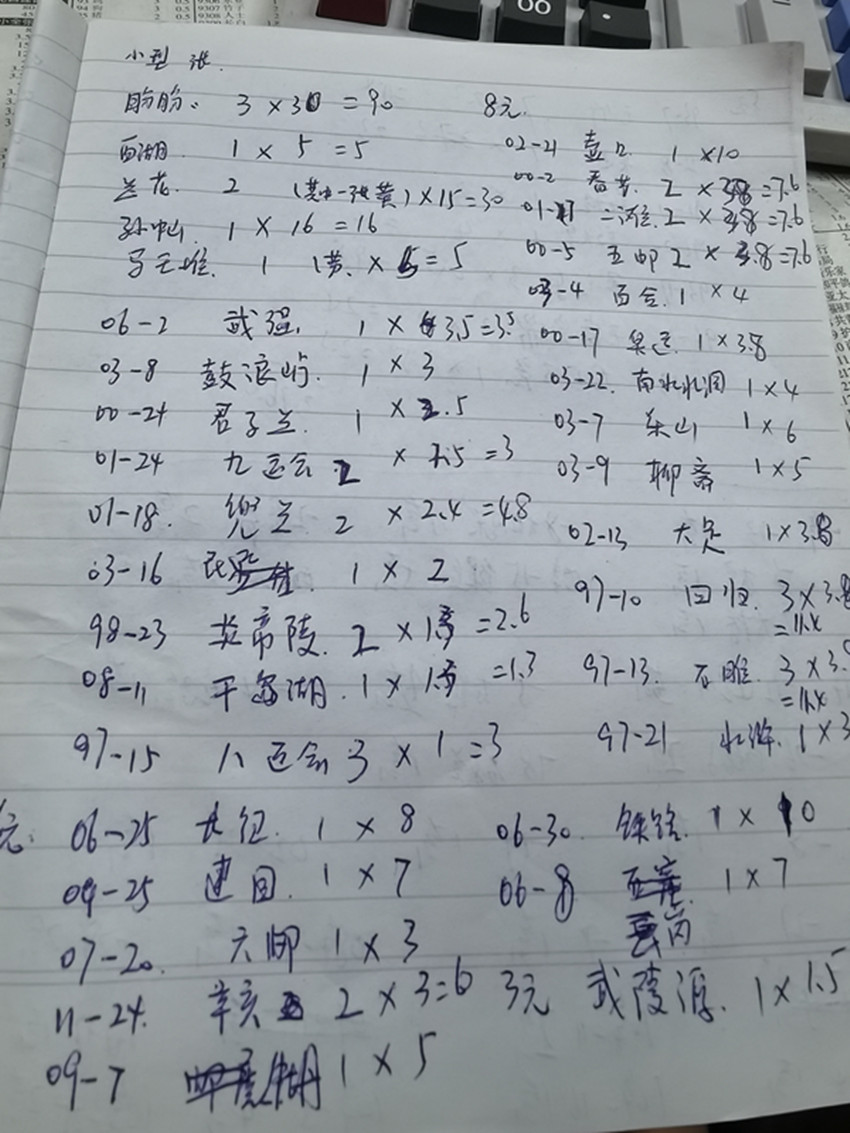 小型张.
盼盼. 3×30=90 8元.
西湖. 1×5=5
兰花. 2 (其中一张黄)×15=30
孙中山. 1×16=16
马王堆. 1 (黄. ×5=5
06-2 武强. 1×3.5=3.5
03-8 鼓浪屿. 1×3
00-24 君子兰. 1×2.5
01-24 九运会 2×1.5=3
01-18. 兜兰 2×2.4=4.8
03-16 1×2
98-23 炎帝陵. 2×1.3=2.6
08-11 干岛湖. 1×1.3=1.3
97-15 八运会 3×1=3
02-21 壶口. 1×10
00-2 春节. 2×3.8=7.6
01-17 二滩. 2×3.8=7.6
00-5 五邮 2×3.8=7.6
03-4 百合. 1×4
00-17 奥运. 1×3.8
03-22. 南水北调 1×4
03-7 乐山 1×6
03-9 聊斋 1×5
02-13 大足 1×3.8
97-10 回归. 3×3.8
=11.4
97-13. 石雕. 3×3.8
=11.4
97-21 水浒. 1×3
元. 06-25 长征. 1×8
09-25 建国. 1×7
07-20. 六邮 1×3
11-24. 辛亥 2×3=6
09-7 湖 1×5
06-30. 铁路. 1×10
06-8 1×7
3元 武陵源. 1×1.5